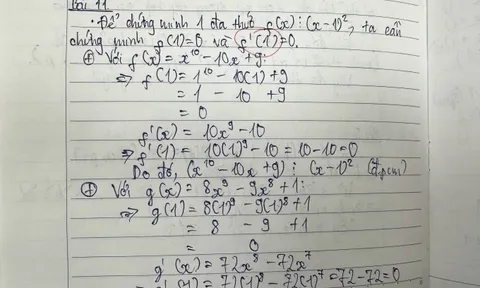 Bài 11
• Để chứng minh 1 đa thức f(x) ⋮ (x-1)², ta cần
chứng minh f(1)=0 và f'(1)=0.
⊕ Với f(x) = x¹⁰ - 10x + 9:
⇒ f(1) = 1¹⁰ - 10(1) + 9
= 1 - 10 + 9
= 0
f'(x) = 10x⁹ - 10
⇒ f'(1) = 10(1)⁹ - 10 = 10 - 10 = 0
Do đó, (x¹⁰ - 10x + 9) ⋮ (x-1)² (đpcm)
⊕ Với g(x) = 8x⁹ - 9x⁸ + 1:
⇒ g(1) = 8(1)⁹ - 9(1)⁸ + 1
= 8 - 9 + 1
= 0
g'(x) = 72x⁸ - 72x⁷
= 72(1)⁸ - 72(1)⁷ = 72 - 72 = 0